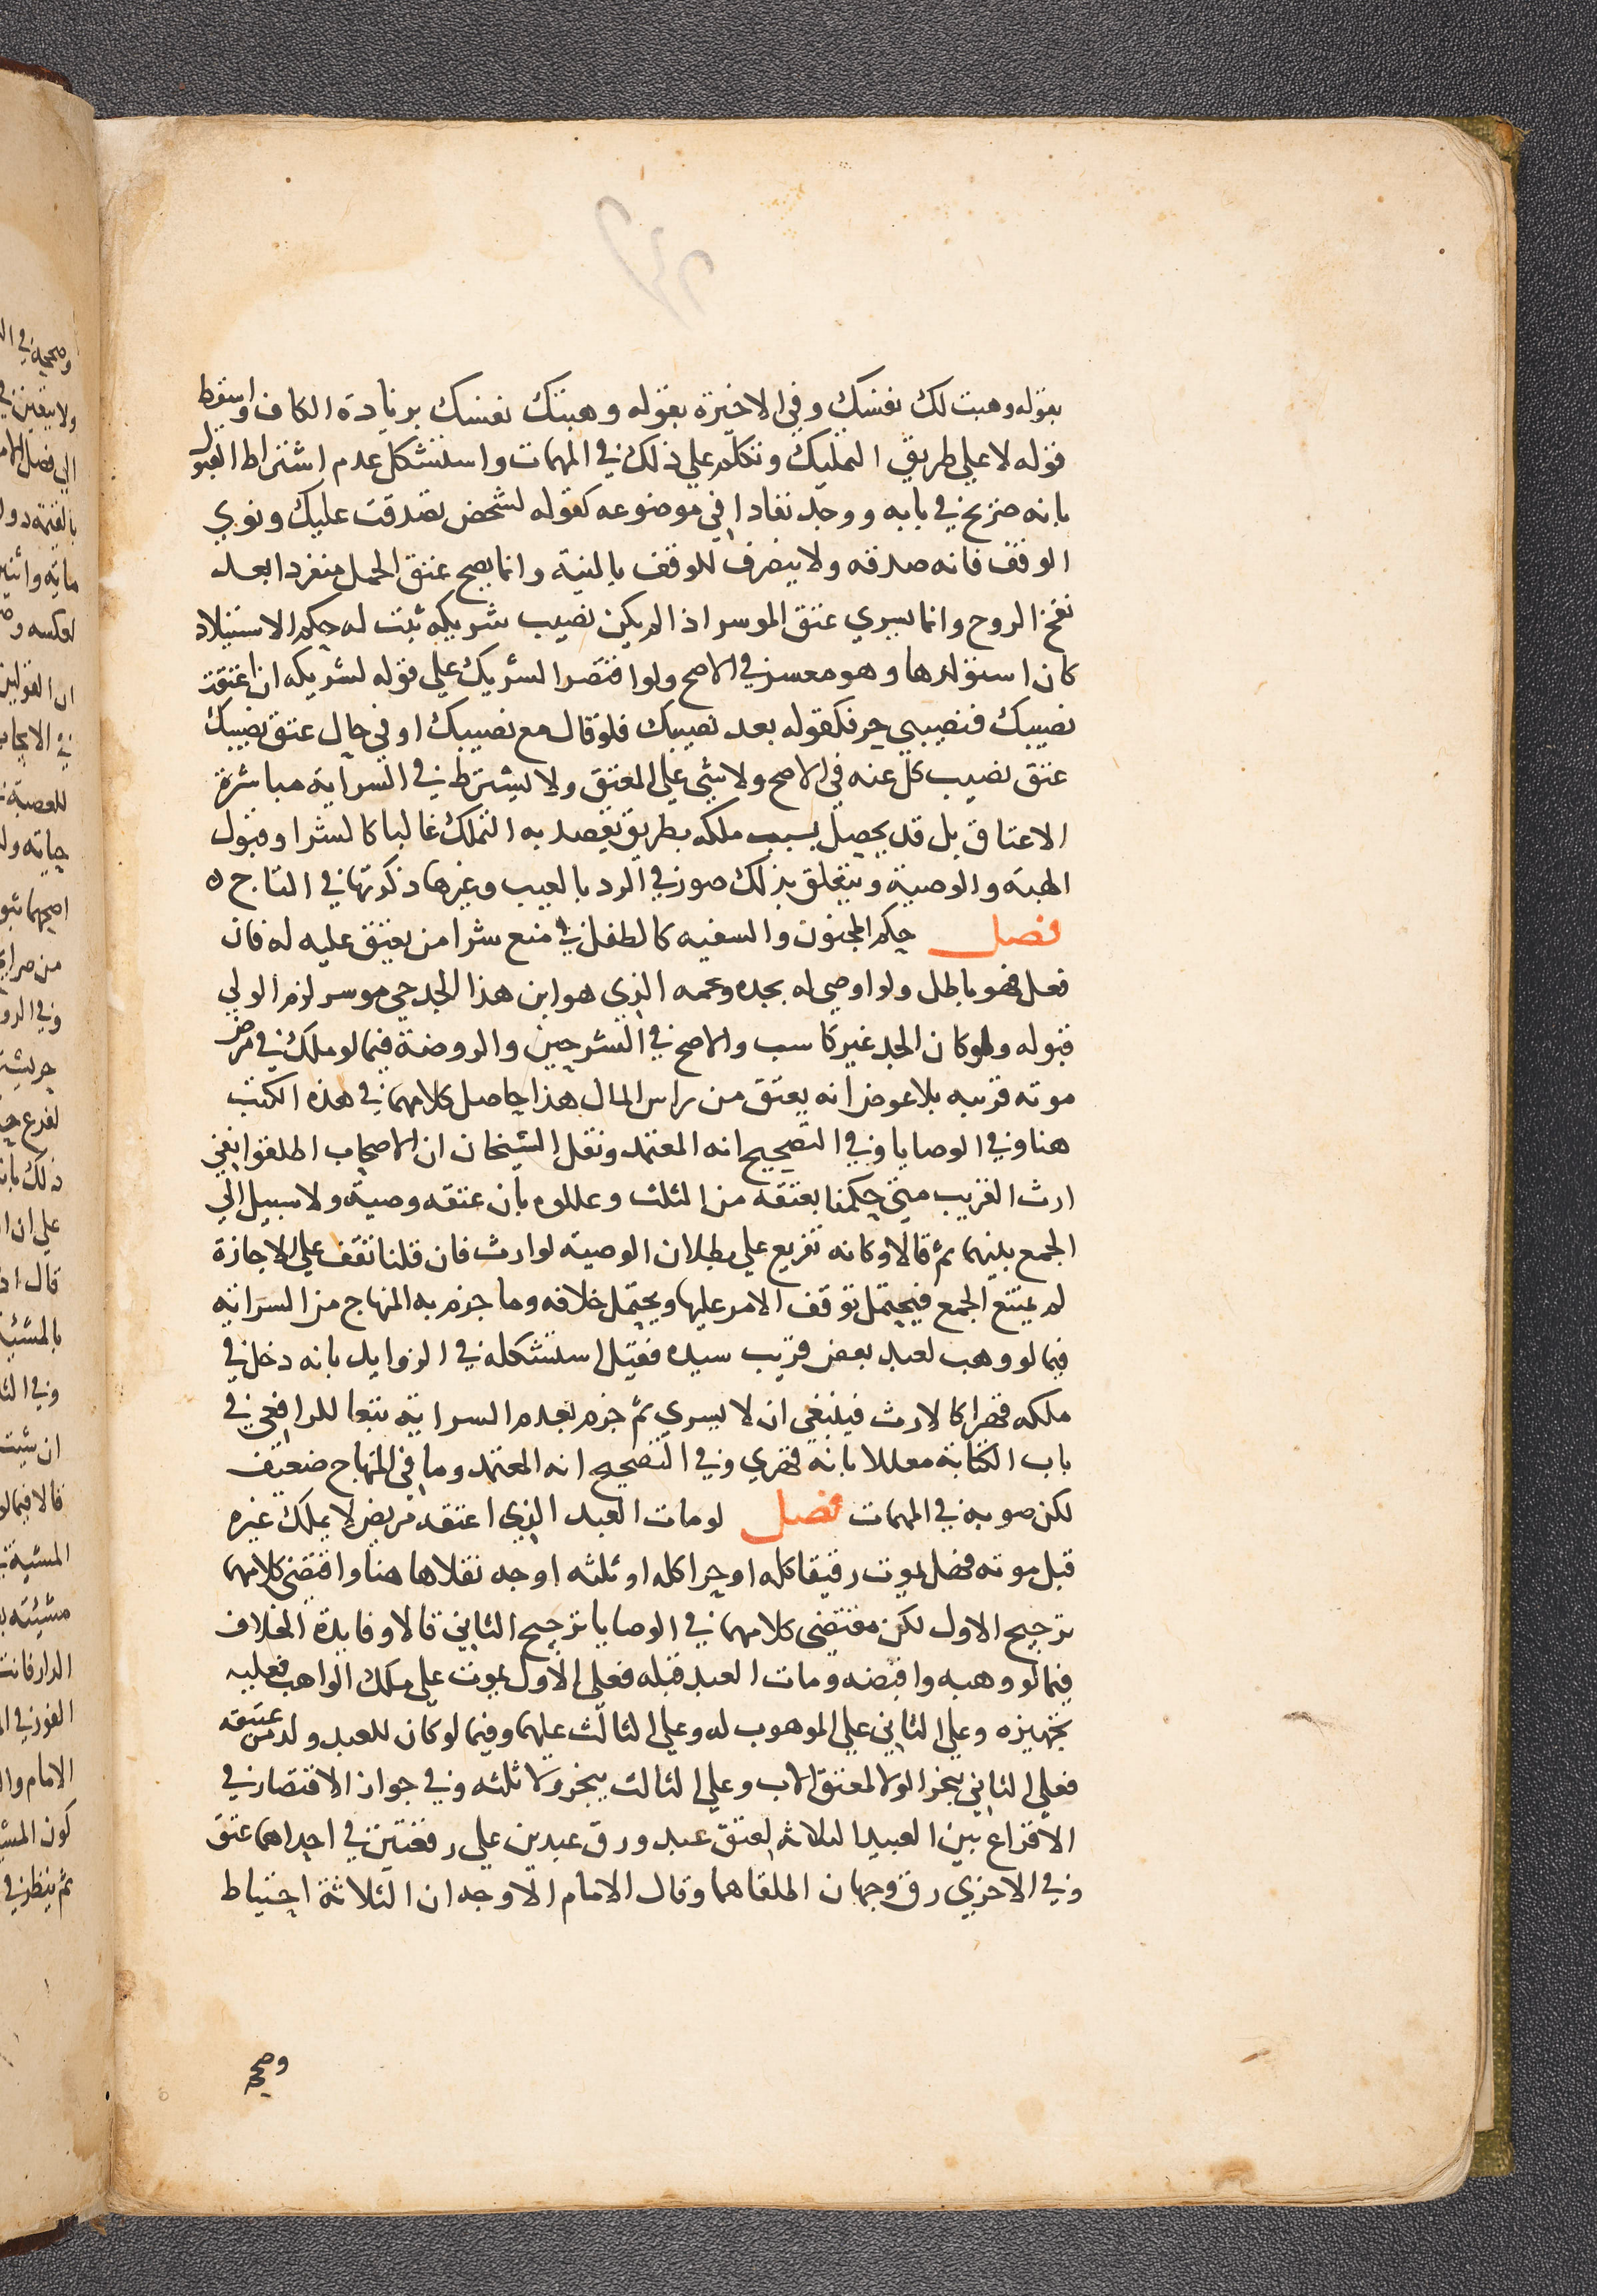 بقوله وهبت لك نفسك وفي الاخيرة بقوله وهبتك نفسك بزيادة الكاف واسقط
قوله لا علي طريق التمليك وتكلم علي ذلك في المهمات واستشكل عدم اشتراط القبول
بانه صريح في بابه ووجد نفاذا في موضوعه كقوله لشخص تصدقت عليك ونوي
الوقف فانه صدقه ولا ينصرف للوقف بالنية وانما يصح عتق الحمل منفردا بعد
نفخ الروح وانما يسري عتق الموسر اذا لم يكن نصيب شريكه ثبت له حكم الاستيلاد
كان استولدها وهو معسر في الاصح ولو اقتصر الشريك علي قوله لشريكه ان اعتقت
نصيبك فنصيبي حر فكقوله بعد نصيبك فلو قال مع نصيبك او في حال عتق نصيبك
عتق نصيب كل عنه في الاصح ولا شي علي المعتق ولا يشترط في السراية مباشرة
الاعتاق بل قد يحصل بسبب ملكه بطريق يقصد به التملك غالبا كالشرا وقبول
الهبة والوصية ويتعلق بذلك صور في الرد بالعيب وغيرها ذكرتها في التاج ه
فصل حكم المجنون والسفيه كالطفل في منع شرا من يعتق عليه له فان
فعل فهو باطل ولو اوصي له بجده وعمه الذي هو ابن هذا الجد حي موسر لزم الولي
قبوله ولو كان الجد غير كاسب والاصح في الشرحين والروضة فيما لو ملك في مرض
موته قريبه بلا عوض انه يعتق من راس المال هذا حاصل كلامهما في هذه الكتب
هنا وفي الوصايا وفي التصحيح انه المعتمد ونقل الشيخان ان الاصحاب اطلقوا نفي
ارث القريب متي حكمنا بعتقه من الثلث وعللوه بان عتقه وصية ولا سبيل الي
الجمع بينهما ثم قالا وكانه تفريع علي بطلان الوصية لوارث فان قلنا تقف علي الاجازة
لم يمتنع الجمع فيحتمل توقف الامر عليها ويحتمل خلافه وما جزم به المنهاج من السراية
فيما لو وهب لعبد بعض قريب سيده فقبل استشكله في الزوايد بانه دخل في
ملكه قهرا كالارث فينبغي ان لا يسري ثم جزم بعدم السراية تبعا للرافعي في
باب الكتابة معللا بانه قهري وفي التصحيح انه المعتمد وما في المنهاج ضعيف
لكن صوبه في المهمات فصل لو مات العبد الذي اعتقه مريض لا يملك غيره
قبل موته فهل يموت رقيقا كله او حرا كله او ثلثه اوجه نقلاها هنا واقتضي كلامهما
ترجيح الاول لكن مقتضي كلامهما في الوصايا ترجيح الثاني قالا وفايدة الخلاف
فيما لو وهبه واقبضه ومات العبد قبله فعلي الاول يموت علي ملك الواهب فعليه
تجهيزه وعلي الثاني علي الموهوب له وعلي الثالث عليهما وفيما لو كان للعبد ولد من عتيقه
فعلي الثاني ينجر الولا لمعتق الاب وعلي الثالث ينجر ولا ثلثه وفي جواز الاقتصار في
الاقراع بين العبيد الثلاثة لعتق عبد ورق عبدين علي رقعتين في احداهما عتق
وفي الاخري رق وجهان اطلقاهما وقال الامام الاوجه ان الثلاثة احتياط
وصححه